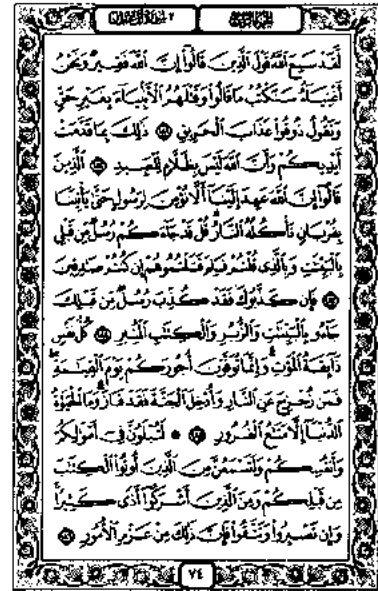 الجزء الرابع
سورة آل عمران
لَّقَدْ سَمِعَ اللَّهُ قَوْلَ الَّذِينَ قَالُوا إِنَّ اللَّهَ فَقِيرٌ وَنَحْنُ
أَغْنِيَاءُ سَنَكْتُبُ مَا قَالُوا وَقَتْلَهُمُ الْأَنبِيَاءَ بِغَيْرِ حَقٍّ
وَنَقُولُ ذُوقُوا عَذَابَ الْحَرِيقِ ١٨١ ذَٰلِكَ بِمَا قَدَّمَتْ
أَيْدِيكُمْ وَأَنَّ اللَّهَ لَيْسَ بِظَلَّامٍ لِّلْعَبِيدِ ١٨٢ الَّذِينَ
قَالُوا إِنَّ اللَّهَ عَهِدَ إِلَيْنَا أَلَّا نُؤْمِنَ لِرَسُولٍ حَتَّىٰ يَأْتِيَنَا
بِقُرْبَانٍ تَأْكُلُهُ النَّارُ قُلْ قَدْ جَاءَكُمْ رُسُلٌ مِّن قَبْلِي
بِالْبَيِّنَاتِ وَبِالَّذِي قُلْتُمْ فَلِمَ قَتَلْتُمُوهُمْ إِن كُنتُمْ صَادِقِينَ
١٨٣ فَإِن كَذَّبُوكَ فَقَدْ كُذِّبَ رُسُلٌ مِّن قَبْلِكَ
جَاءُو بِالْبَيِّنَاتِ وَالزُّبُرِ وَالْكِتَابِ الْمُنِيرِ ١٨٤ كُلُّ نَفْسٍ
ذَائِقَةُ الْمَوْتِ وَإِنَّمَا تُوَفَّوْنَ أُجُورَكُمْ يَوْمَ الْقِيَامَةِ
فَمَن زُحْزِحَ عَنِ النَّارِ وَأُدْخِلَ الْجَنَّةَ فَقَدْ فَازَ وَمَا الْحَيَاةُ
الدُّنْيَا إِلَّا مَتَاعُ الْغُرُورِ ١٨٥ ۞ لَتُبْلَوُنَّ فِي أَمْوَالِكُمْ
وَأَنفُسِكُمْ وَلَتَسْمَعُنَّ مِنَ الَّذِينَ أُوتُوا الْكِتَابَ
مِن قَبْلِكُمْ وَمِنَ الَّذِينَ أَشْرَكُوا أَذًى كَثِيرًا
وَإِن تَصْبِرُوا وَتَتَّقُوا فَإِنَّ ذَٰلِكَ مِنْ عَزْمِ الْأُمُورِ ١٨٦
٧٤